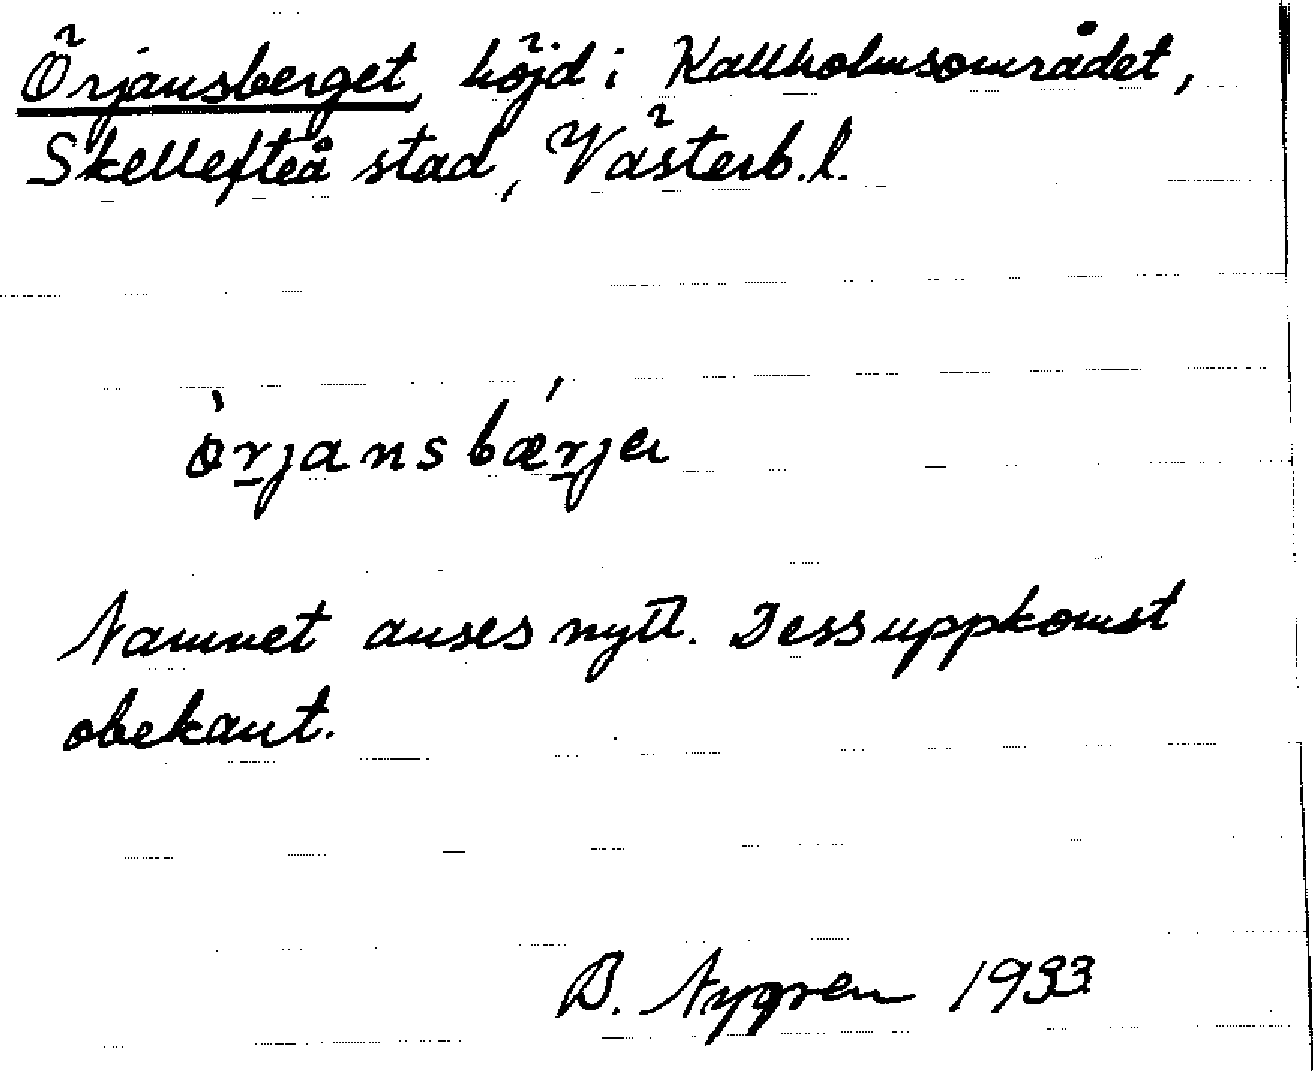 Örjansberget, höjd i Kallholmsområdet,
Skellefteå stad, Västerb.l.
ò̱rjansbǽṟjeɩ
Namnet anses nytt. Dess uppkomst
obekant.
B. Nygren 1933